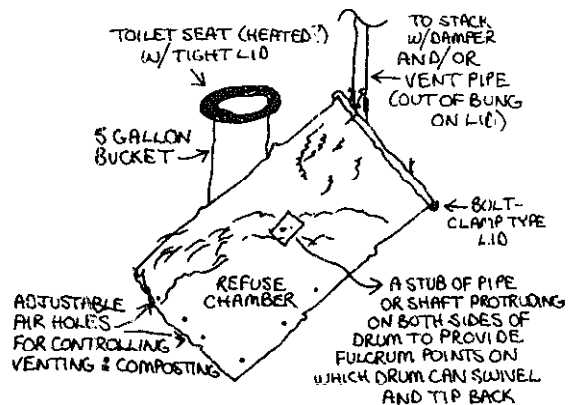 TOILET SEAT (HEATED?)
W/ TIGHT LID
5 GALLON
BUCKET
TO STACK
W/DAMPER
AND/OR
VENT PIPE
(OUT OF BUNG
ON LID)
BOLT-
CLAMP TYPE
LID
REFUSE
CHAMBER
ADJUSTABLE
AIR HOLES
FOR CONTROLLING
VENTING & COMPOSTING
A STUB OF PIPE
OR SHAFT PROTRUDING
ON BOTH SIDES OF
DRUM TO PROVIDE
FULCRUM POINTS ON
WHICH DRUM CAN SWIVEL
AND TIP BACK